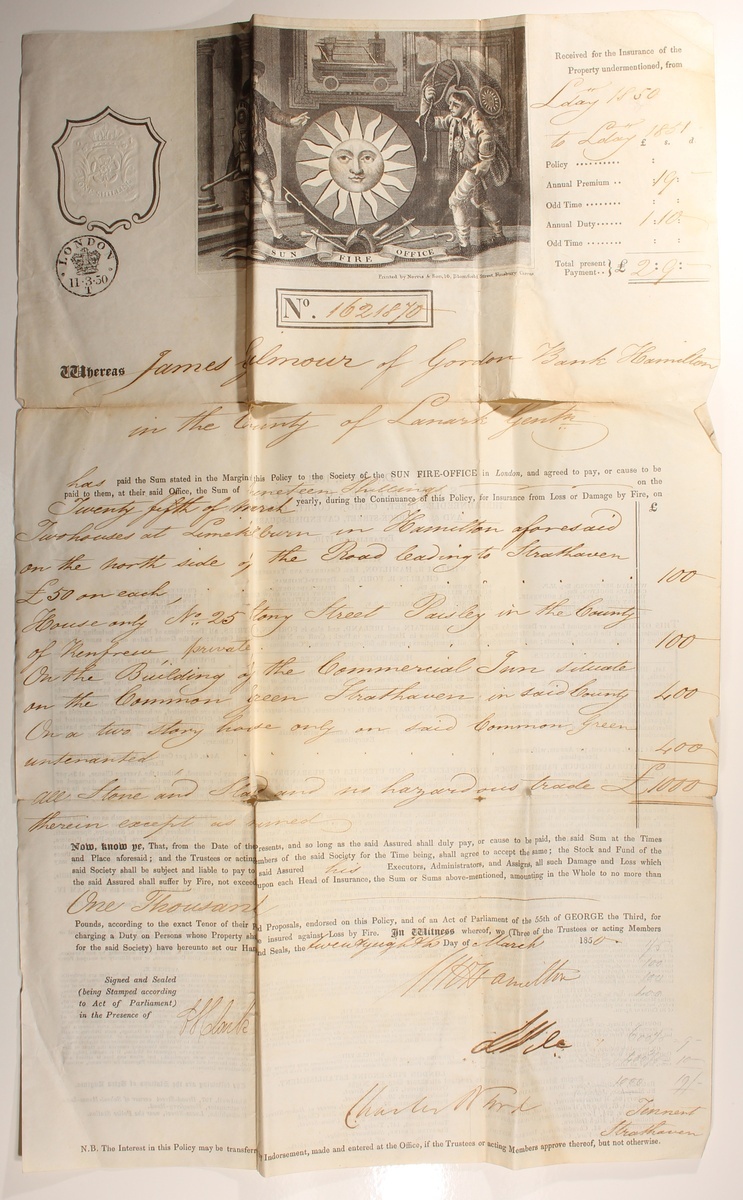 Received for the Insurance of the
Property undermentioned, from
Lday 1850
to Lday 1851
£ s. d
Policy .......... :
Annual Premium .. : 19 :
Odd Time ........ : :
Annual Duty ...... 1 : 10 :
Odd Time ........ : :
Total present
Payment .. } £ 2 : 9 :
LONDON
11·3·50
1
SUN FIRE OFFICE
No. 1621870
Whereas James Gilmour of Gordon Bank Hamilton
in the County of Lanark Gentn
has paid the Sum stated in the Margin this Policy to the Society of the SUN FIRE-OFFICE in London, and agreed to pay, or cause to be
paid to them, at their said Office, the Sum of nineteen Shillings on the
Twenty fifth of March yearly, during the Continuance of this Policy, for Insurance from Loss or Damage by Fire, on
£
Two houses at Limeksburn in Hamilton aforesaid
on the north side of the Road leading to Strathaven
£50 on each 100
House only No. 25 Story Street Paisley in the County
of Renfrew private 100
On the Building of the Commercial Inn situate
on the Common Green Strathaven in said County 400
On a two story house only on said Common Green
untenanted 400
all Stone and Slated and no hazardous trade £ 1000
therein except as
Now, know ye, That, from the Date of these presents, and so long as the said Assured shall duly pay, or cause to be paid, the said Sum at the Times
and Place aforesaid; and the Trustees or acting members of the said Society for the Time being, shall agree to accept the same; the Stock and Fund of the
said Society shall be subject and liable to pay to said Assured his Executors, Administrators, and Assigns, all such Damage and Loss which
the said Assured shall suffer by Fire, not exceed upon each Head of Insurance, the Sum or Sums above-mentioned, amounting in the Whole to no more than
One Thousand
Pounds, according to the exact Tenor of their Proposals, endorsed on this Policy, and of an Act of Parliament of the 55th of GEORGE the Third, for
charging a Duty on Persons whose Property insured against Loss by Fire. In Witness whereof, we (Three of the Trustees or acting Members
for the said Society) have hereunto set our Hands and Seals, the twenty eighth Day of March 1850
Signed and Sealed
(being Stamped according
to Act of Parliament)
in the Presence of
Hamilton
Charles
Tennent
Strathaven
N.B. The Interest in this Policy may be transfer by Indorsement, made and entered at the Office, if the Trustees or acting Members approve thereof, but not otherwise.